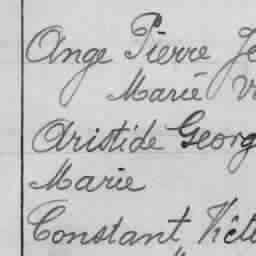 Ange Pierre Je
Marie V
Aristide Georg
Marie
Constant Victo